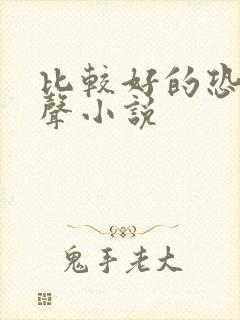 比較好的恐
聲小說
鬼手老大